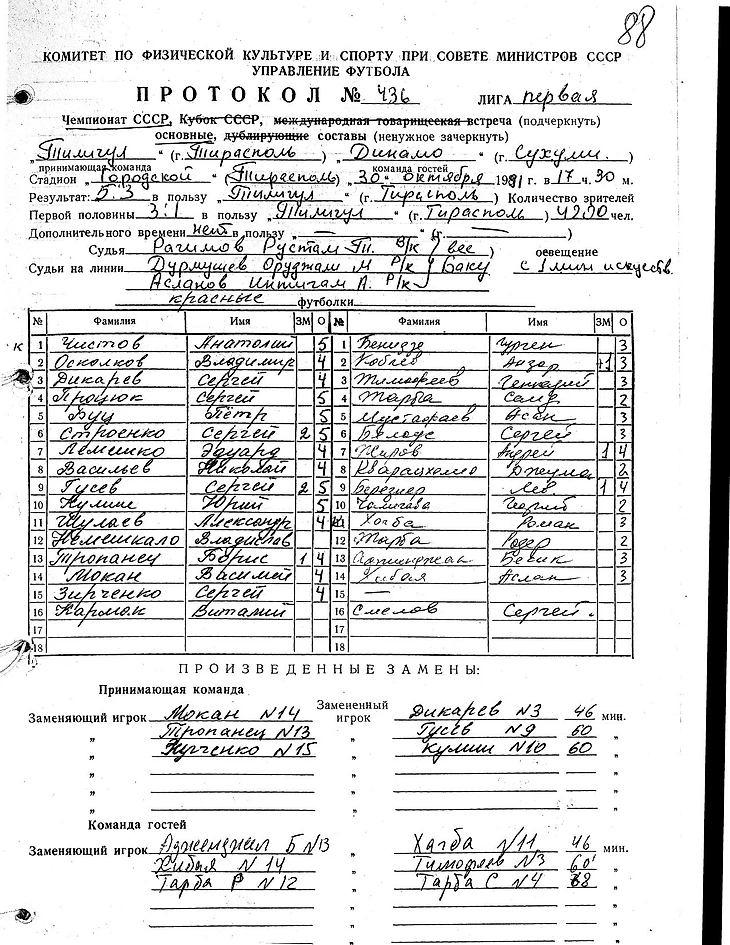 88
КОМИТЕТ ПО ФИЗИЧЕСКОЙ КУЛЬТУРЕ И СПОРТУ ПРИ СОВЕТЕ МИНИСТРОВ СССР
УПРАВЛЕНИЕ ФУТБОЛА
ПРОТОКОЛ № 436 ЛИГА первая
Чемпионат СССР, Кубок СССР, международная товарищеская встреча (подчеркнуть)
основные, дублирующие составы (ненужное зачеркнуть)
„Тилигул“ (г. Тирасполь) „Динамо“ (г. Сухуми.)
принимающая команда команда гостей
Стадион „Городской (Тирасполь) „30“ октября 1991 г. в 17 ч. 30 м.
Результат: 5:3 в пользу „Тилигул“ (г. Тирасполь) Количество зрителей
Первой половины 3:1 в пользу „Тилигул“ (г. Тирасполь) 4200 чел.
Дополнительного времени нет в пользу „—“ (г. —)
Судья Рагимов Рустам Т. В/к (все) освещение
Судьи на линии Дурмушев Оруджали М Р/к Баку с 1 мин искуств.
Асланов Интигам А. Р/к
красные футболки
№ Фамилия Имя ЗМ О № Фамилия Имя ЗМ О
к 1 Чистов Анатолий 5 1 Бенидзе Гурген 3
2 Осколков Владимир 4 2 Коблев Анзор +1 3
3 Дикарев Сергей 4 3 Тимофеев Геннадий 3
4 Процюк Сергей 5 4 Тарба Саид 2
5 Буц Пётр 5 5 Мустафаев Асан 3
6 Строенко Сергей 2 5 6 Сергей 3
7 Лемешко Эдуард 4 7 Жиров Андрей 1 4
8 Васильев Николай 4 8 Кварацхелия Джума 2
9 Гусев Сергей 2 5 9 Березнер Лев 1 4
10 Кулиш Юрий 5 10 2
11 Шулаев Александр 4 11 Хагба Роман 3
12 Немешкало Владислав 12 Тарба 2
13 Тропанец Борис 1 4 13 Аджинджал Бесик 3
14 Мокан Василий 4 14 Кибая Аслан 3
15 Зирченко Сергей 4 15 —
16 Кармок Виталий 16 Смелов Сергей.
17 17
18 18
ПРОИЗВЕДЕННЫЕ ЗАМЕНЫ:
Принимающая команда
Заменяющий игрок Мокан N14 Замененный игрок Дикарев N3 46 мин.
„ Тропанец N13 Гусев N9 60 „
„ N15 „ Кулиш N10 60 „
„ „ „
„ „ „
„ „ „
Команда гостей
Заменяющий игрок Аджинджал Б N13 „ Хагба N11 46 мин.
Кибая N 14 „ Тимофеев N3 60' „
Тарба Р N12 „ Тарба С N4 68 „
„ „
„ „